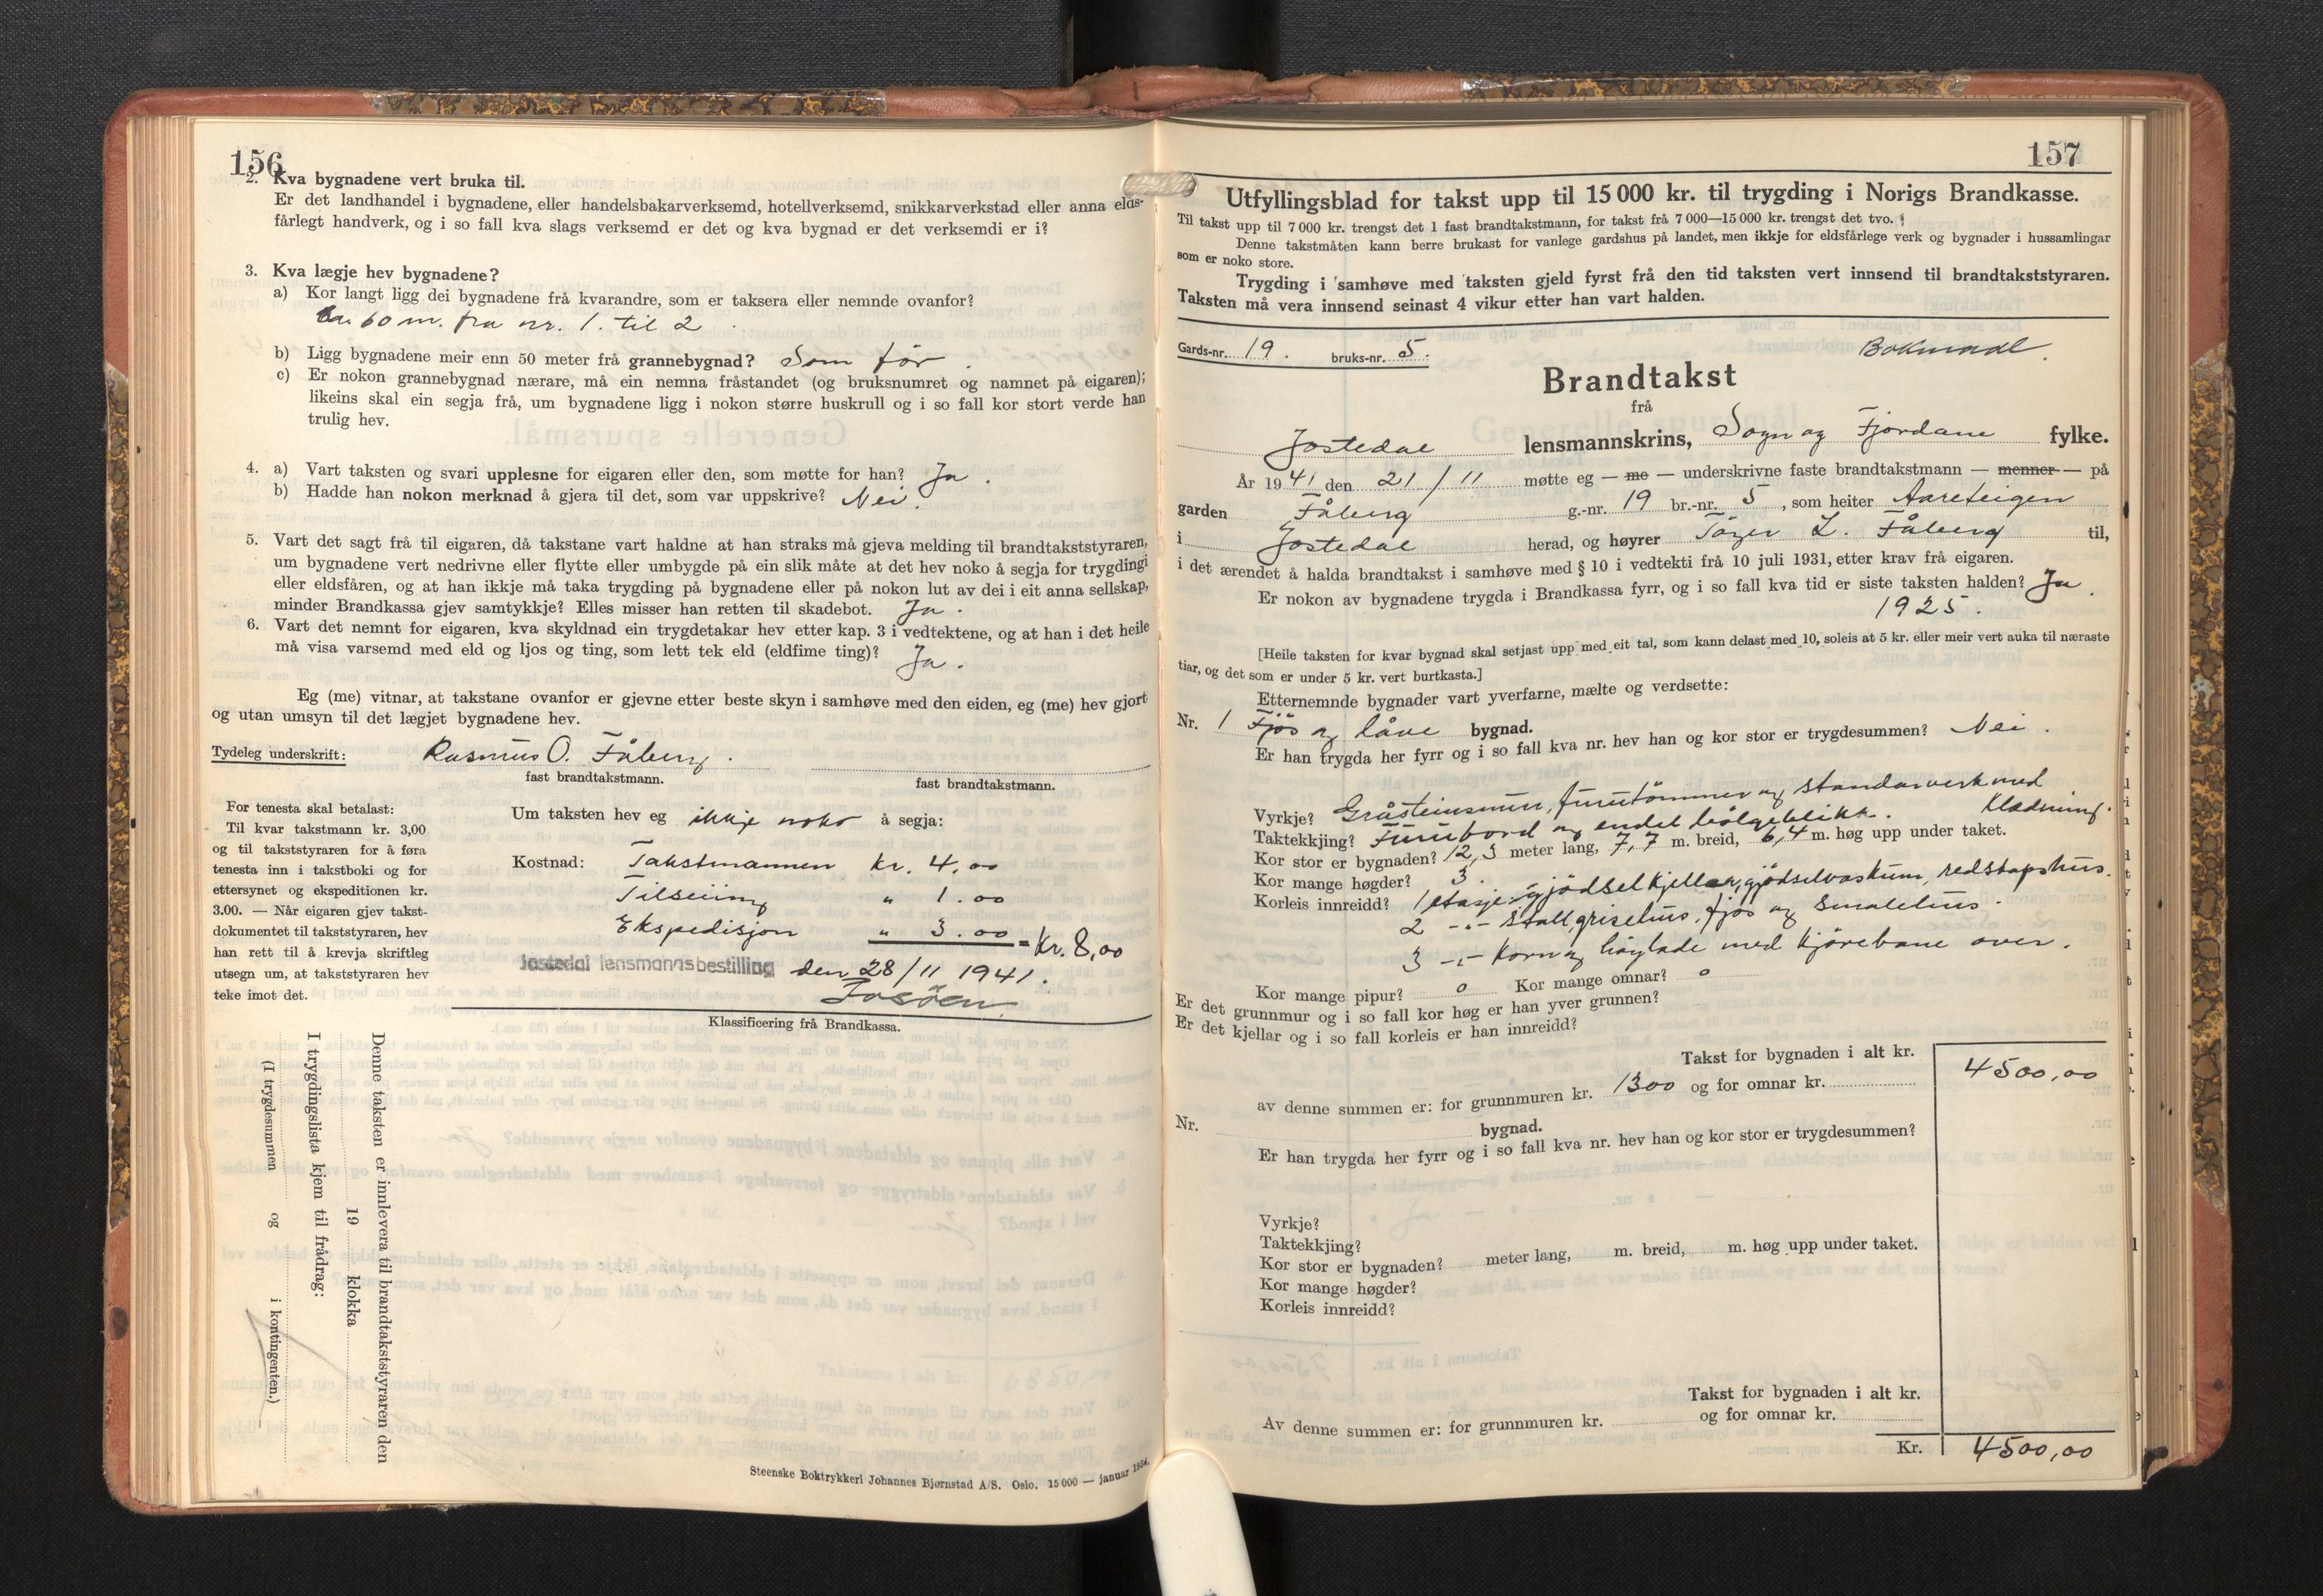 156
2. Kva bygnadene vert bruka til.
Er det landhandel i bygnadene, eller handelsbakarverksemd, hotellverksemd, snikkarverkstad eller anna elds-
fårlegt handverk, og i so fall kva slags verksemd er det og kva bygnad er det verksemdi er i?
3. Kva lægje hev bygnadene?
a) Kor langt ligg dei bygnadene frå kvarandre, som er taksera eller nemnde ovanfor?
Ca. 60 m. fra nr. 1. til 2.
b) Ligg bygnadene meir enn 50 meter frå grannebygnad? Som før.
c) Er nokon grannebygnad nærare, må ein nemna fråstandet (og bruksnumret og namnet på eigaren);
likeins skal ein segja frå, um bygnadene ligg i nokon større huskrull og i so fall kor stort verde han
trulig hev.
4. a) Vart taksten og svari upplesne for eigaren eller den, som møtte for han? Ja.
b) Hadde han nokon merknad å gjera til det, som var uppskrive? Nei.
5. Vart det sagt frå til eigaren, då takstane vart haldne at han straks må gjeva melding til brandtakststyraren,
um bygnadene vert nedrivne eller flytte eller umbygde på ein slik måte at det hev noko å segja for trygdingi
eller eldsfåren, og at han ikkje må taka trygding på bygnadene eller på nokon lut av dei i eit anna sellskap,
minder Brandkassa gjev samtykkje? Elles misser han retten til skadebot. Ja.
6. Vart det nemnt for eigaren, kva skyldnad ein trygdetakar hev etter kap. 3 i vedtektene, og at han i det heile
må visa varsemd med eld og ljos og ting, som lett tek eld (eldfime ting)? Ja.
Eg (me) vitnar, at takstane ovanfor er gjevne etter beste skyn i samhøve med den eiden, eg (me) hev gjort
og utan umsyn til det lægjet bygnadene hev.
Tydeleg underskrift: Rasmus O. Fåberg.
fast brandtakstmann. fast brandtakstmann.
For tenesta skal betalast:
Til kvar takstmann kr. 3,00
og til takststyraren for å føra
tenesta inn i takstboki og for
ettersynet og ekspeditionen kr.
3.00. — Når eigaren gjev takst-
dokumentet til takststyraren, hev
han rett til å krevja skriftleg
utsegn um, at takststyraren hev
teke imot det.
Um taksten hev eg ikkje noko å segja:
Kostnad: Takstmannen kr. 4,00
" 1.00
Ekspedisjon " 3.00 = Kr. 8,00
Jostedal lensmannsbestilling den 28/11 1941.
Klassificering frå Brandkassa.
Denne taksten er innlevera til brandtakststyraren den
19 klokka
I trygdingslista kjem til frådrag:
(I trygdesummen og i kontingenten.)
Steenske Boktrykkeri Johannes Bjørnstad A/S. Oslo. 15 000 — januar 1934.
157
Utfyllingsblad for takst upp til 15 000 kr. til trygding i Norigs Brandkasse.
Til takst upp til 7 000 kr. trengst det 1 fast brandtakstmann, for takst frå 7 000—15 000 kr. trengst det tvo.
Denne takstmåten kann berre brukast for vanlege gardshus på landet, men ikkje for eldsfårlege verk og bygnader i hussamlingar
som er noko store.
Trygding i samhøve med taksten gjeld fyrst frå den tid taksten vert innsend til brandtakststyraren.
Taksten må vera innsend seinast 4 vikur etter han vart halden.
Gards-nr. 19. bruks-nr. 5. Bokmaal.
Brandtakst
frå
Jostedal lensmannskrins, Sogn og Fjordane fylke.
År 1941 den 21/11 møtte eg — me — underskrivne faste brandtakstmann — menner — på
garden Fåberg g.-nr. 19 br.-nr. 5, som heiter Aareteigen
i Jostedal herad, og høyrer Tøger L. Fåberg til,
i det ærendet å halda brandtakst i samhøve med § 10 i vedtekti frå 10 juli 1931, etter krav frå eigaren.
Er nokon av bygnadene trygda i Brandkassa fyrr, og i so fall kva tid er siste taksten halden? Ja.
1925.
[Heile taksten for kvar bygnad skal setjast upp med eit tal, som kann delast med 10, soleis at 5 kr. eller meir vert auka til næraste
tiar, og det som er under 5 kr. vert burtkasta.]
Etternemnde bygnader vart yverfarne, mælte og verdsette:
Nr. 1 Fjös og låve bygnad.
Er han trygda her fyrr og i so fall kva nr. hev han og kor stor er trygdesummen? Nei.
Vyrkje? Gråsteinsmur, furutömmer og standarverk med Klædning.
Taktekkjing? Furubord og endel bølgeblikk.
Kor stor er bygnaden? 12,3 meter lang, 7,7 m. breid, 6,4 m. høg upp under taket.
Kor mange høgder? 3.
Korleis innreidd? 1 etasje gjödselkjeller, gjödselvaskum, redskapshus.
2 -"- Stall, grisehus, fjös og Smalehus.
3 -"- Korn og höylade med kjörebane over.
Kor mange pipur? 0 Kor mange omnar? 0
Er det grunnmur og i so fall kor høg er han yver grunnen?
Er det kjellar og i so fall korleis er han innreidd?
Takst for bygnaden i alt kr. 4500,00
av denne summen er: for grunnmuren kr. 1300 og for omnar kr.
Nr. bygnad.
Er han trygda her fyrr og i so fall kva nr. hev han og kor stor er trygdesummen?
Vyrkje?
Taktekkjing?
Kor stor er bygnaden? meter lang, m. breid, m. høg upp under taket.
Kor mange høgder?
Korleis innreidd?
Takst for bygnaden i alt kr.
Av denne summen er: for grunnmuren kr. og for omnar kr.
Kr. 4500,00